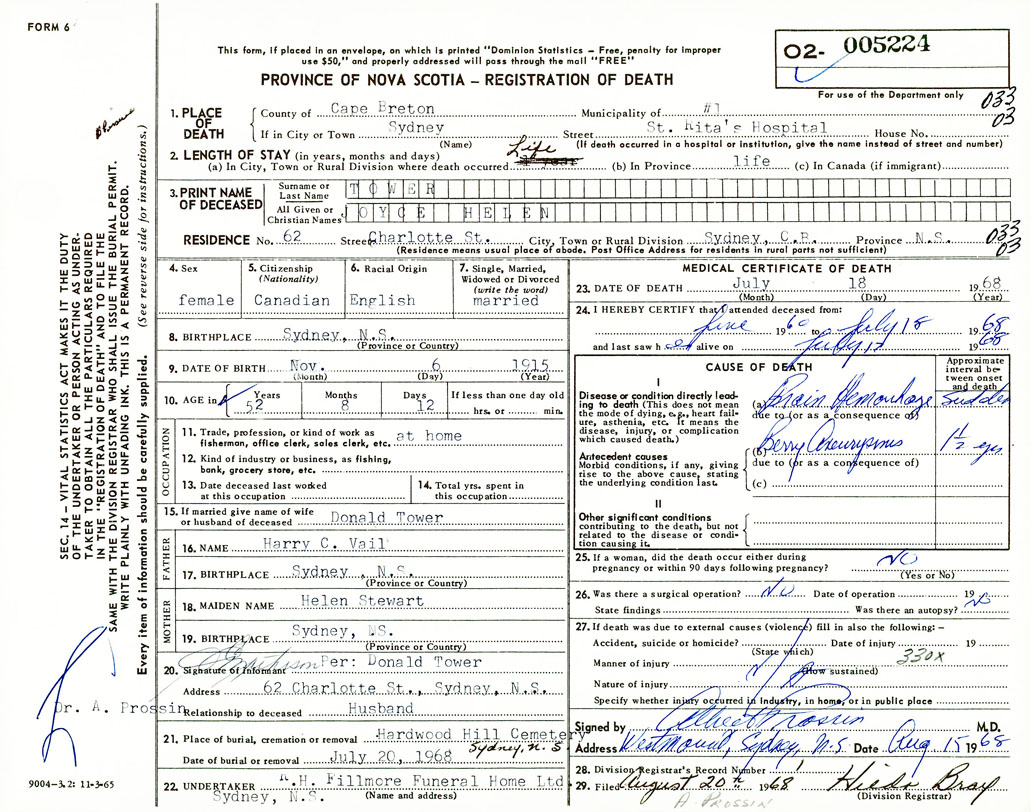 FORM 6
This form, if placed in an envelope, on which is printed "Dominion Statistics – Free, penalty for improper
use $50," and properly addressed will pass through the mail "FREE"
PROVINCE OF NOVA SCOTIA – REGISTRATION OF DEATH
O2- 005224
For use of the Department only
033
03
1. PLACE OF DEATH
County of Cape Breton Municipality of #1
If in City or Town Sydney Street St. Rita's Hospital House No.
(Name) (If death occurred in a hospital or institution, give the name instead of street and number)
2. LENGTH OF STAY (in years, months and days)
(a) In City, Town or Rural Division where death occurred Life (b) In Province life (c) In Canada (if immigrant)
3. PRINT NAME OF DECEASED
Surname or Last Name TOWER
All Given or Christian Names JOYCE HELEN
RESIDENCE No. 62 Street Charlotte St. City, Town or Rural Division Sydney, C.B. Province N.S.
(Residence means usual place of abode. Post Office Address for residents in rural parts not sufficient)
033
03
4. Sex
female
5. Citizenship
(Nationality)
Canadian
6. Racial Origin
English
7. Single, Married,
Widowed or Divorced
(write the word)
married
8. BIRTHPLACE Sydney, N.S.
(Province or Country)
9. DATE OF BIRTH Nov. 6 1915
(Month) (Day) (Year)
10. AGE in Years Months Days If less than one day old
52 8 12 hrs. or min.
OCCUPATION
11. Trade, profession, or kind of work as
fisherman, office clerk, sales clerk, etc. at home
12. Kind of industry or business, as fishing,
bank, grocery store, etc.
13. Date deceased last worked
at this occupation
14. Total yrs. spent in
this occupation
15. If married give name of wife
or husband of deceased Donald Tower
FATHER
16. NAME Harry C. Vail
17. BIRTHPLACE Sydney, N.S.
(Province or Country)
MOTHER
18. MAIDEN NAME Helen Stewart
19. BIRTHPLACE Sydney, NS.
(Province or Country)
20. Signature of Informant Per: Donald Tower
Address 62 Charlotte St., Sydney, N.S.
Relationship to deceased Husband
Dr. A. Prossin
21. Place of burial, cremation or removal Hardwood Hill Cemetery
Sydney, N.S.
Date of burial or removal July 20, 1968
22. UNDERTAKER H. Fillmore Funeral Home Ltd
Sydney, N.S. (Name and address)
MEDICAL CERTIFICATE OF DEATH
23. DATE OF DEATH July 18 1968
(Month) (Day) (Year)
24. I HEREBY CERTIFY that I attended deceased from:
June 1960 to July 18 1968
and last saw her alive on July 17 1968
CAUSE OF DEATH
Approximate
interval be-
tween onset
and death
I
Disease or condition directly lead-
ing to death (This does not mean
the mode of dying, e.g., heart fail-
ure, asthenia, etc. It means the
disease, injury, or complication
which caused death.)
(a) Brain Hemorrhage Sudden
due to (or as a consequence of)
Antecedent causes
Morbid conditions, if any, giving
rise to the above cause, stating
the underlying condition last.
(b) Berry Aneurysms 1½ yrs
due to (or as a consequence of)
(c)
II
Other significant conditions
contributing to the death, but not
related to the disease or condi-
tion causing it.
25. If a woman, did the death occur either during
pregnancy or within 90 days following pregnancy? NO
(Yes or No)
26. Was there a surgical operation? No Date of operation 19
State findings Was there an autopsy? No
27. If death was due to external causes (violence) fill in also the following:–
Accident, suicide or homicide? Date of injury 19
(State which)
330X
Manner of injury
(How sustained)
Nature of injury
Specify whether injury occurred in Industry, in home, or in public place
Signed by Albert Prossin M.D.
Address Westmount, Sydney, N.S. Date Aug. 15 1968
28. Division Registrar's Record Number
29. Filed August 20th 1968 Hilda Bray
(Division Registrar)
A PROSSIN
SEC. 14 – VITAL STATISTICS ACT MAKES IT THE DUTY
OF THE UNDERTAKER OR PERSON ACTING AS UNDER-
TAKER TO OBTAIN ALL THE PARTICULARS REQUIRED
IN THE "REGISTRATION OF DEATH" AND TO FILE THE
SAME WITH THE DIVISION REGISTRAR WHO SHALL ISSUE THE BURIAL PERMIT.
WRITE PLAINLY WITH UNFADING INK. THIS IS A PERMANENT RECORD.
Every item of information should be carefully supplied. (See reverse side for instructions.)
9004-3.2: 11-3-65